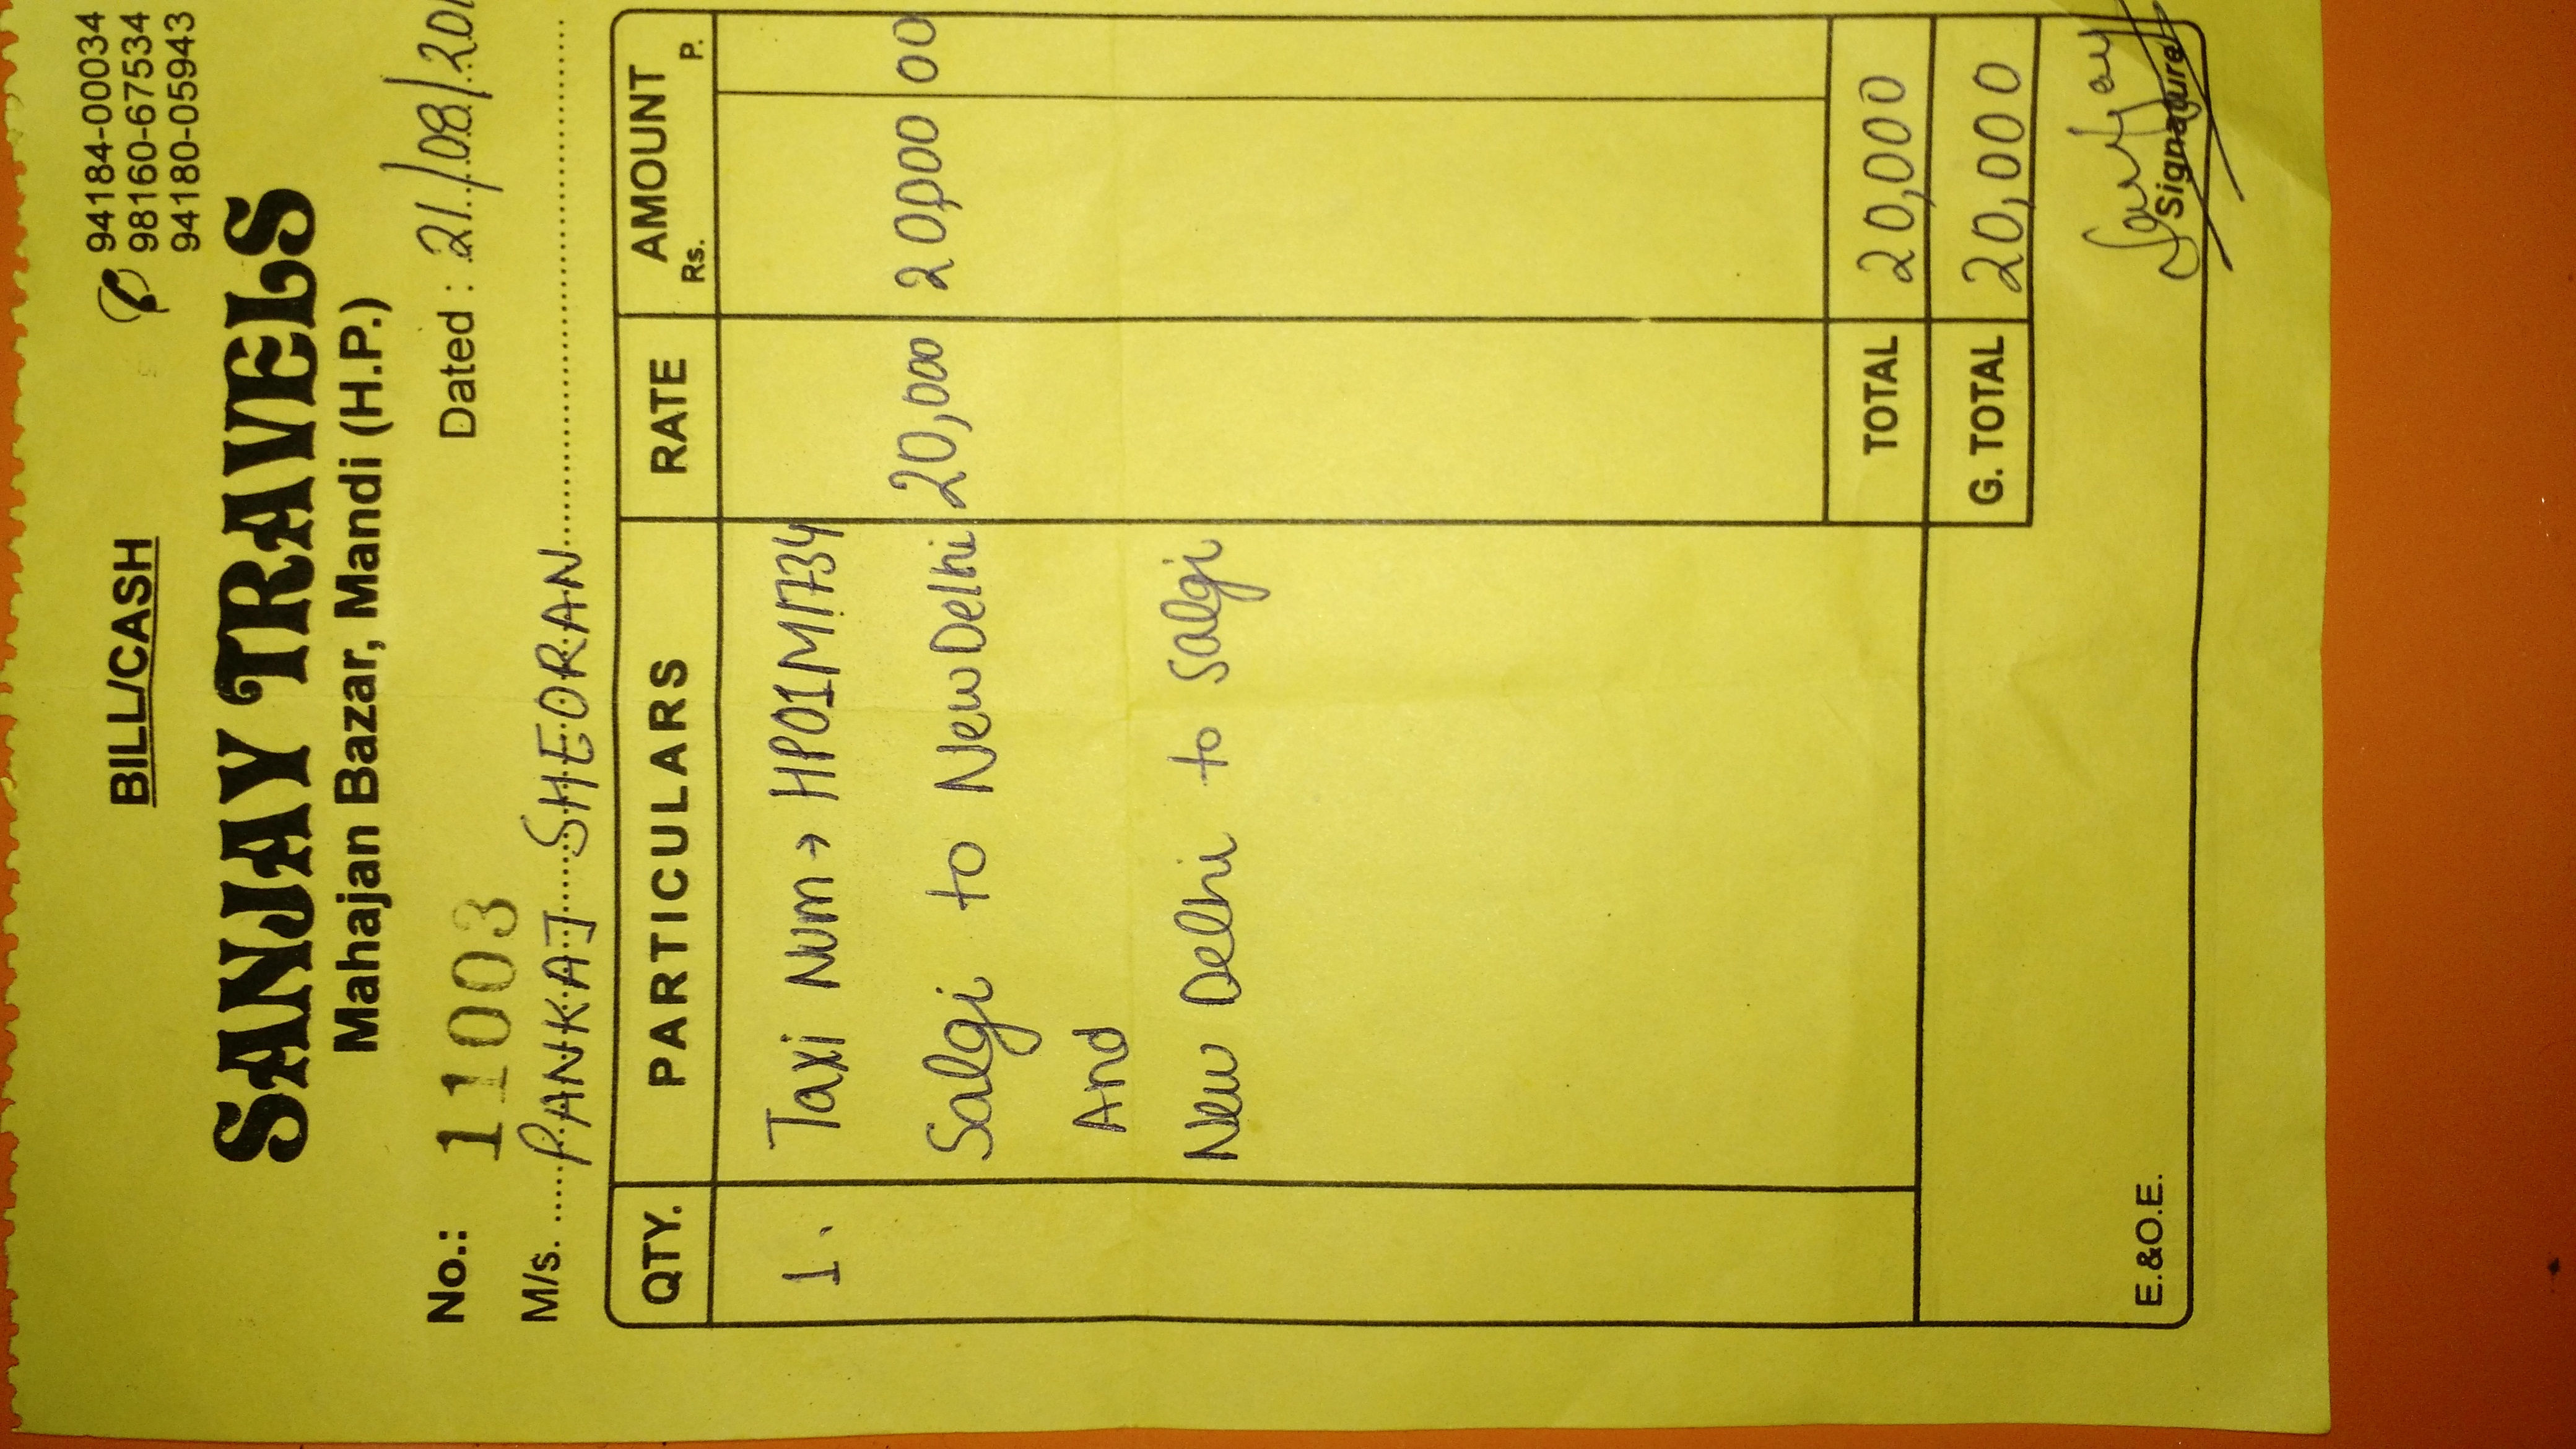 BILL/CASH
94184-00034
98160-67534
94180-05943
SANJAY TRAVELS
Mahajan Bazar, Mandi (H.P.)
No.: 11003 Dated : 21/08/201
M/s. PANKAJ SHEORAN
QTY. PARTICULARS RATE AMOUNT
Rs. P.
1. Taxi Num → HP01M1734
Salgi to New Delhi 20,000 20,000 00
And
New Delhi to Salgi
TOTAL 20,000
G. TOTAL 20,000
Sanjay
E.&O.E. Signature